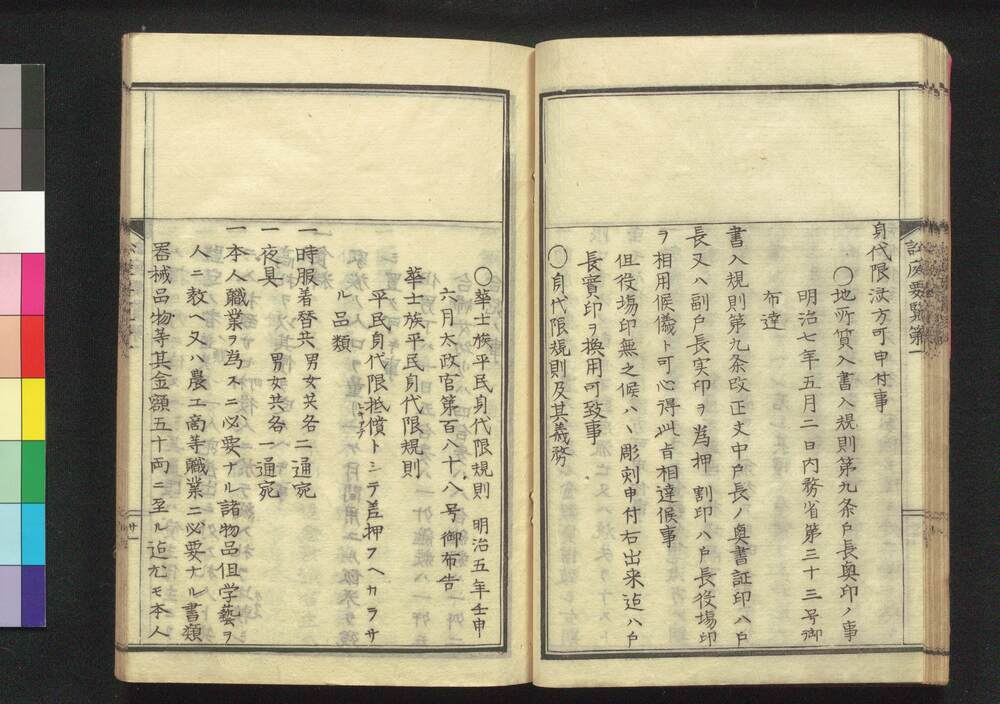 身代限済方可申付事
〇地所質入書入規則第九条戸長奥印ノ事
明治七年五月二日内務省第三十三号御
布達
書入規則第九条改正文中戸長ノ奥書証印ハ戸
長又ハ副戸長実印ヲ為押 割印ハ戸長役場印
ヲ相用候儀ト可心得此旨相達候事
但役場印無之候ハヽ彫刻申付右出来迠ハ戸
長實印ヲ換用可致事
〇身代限規則及其義務
〇華士族平民身代限規則 明治五年壬申
六月太政官第百八十八号御布告
華士族平民身代限規則
平民身代限抵償トシテ差押フヘカラサ
ル品類
一時服着替共男女共各二通宛
一夜具 男女共各一通宛
一本人職業ヲ為スニ必要ナル諸物品但学藝ヲ
人ニ教ヘ又ハ農工商等職業ニ必要ナル書類
器械品物等其金額五十両ニ至ル迠尤モ本人